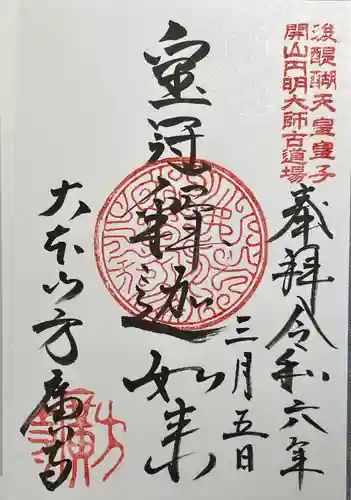 後醍醐天皇皇子
開山円明大師古道場
奉拝 令和六年
三月五日
宝冠釋迦如来
大本山方廣寺